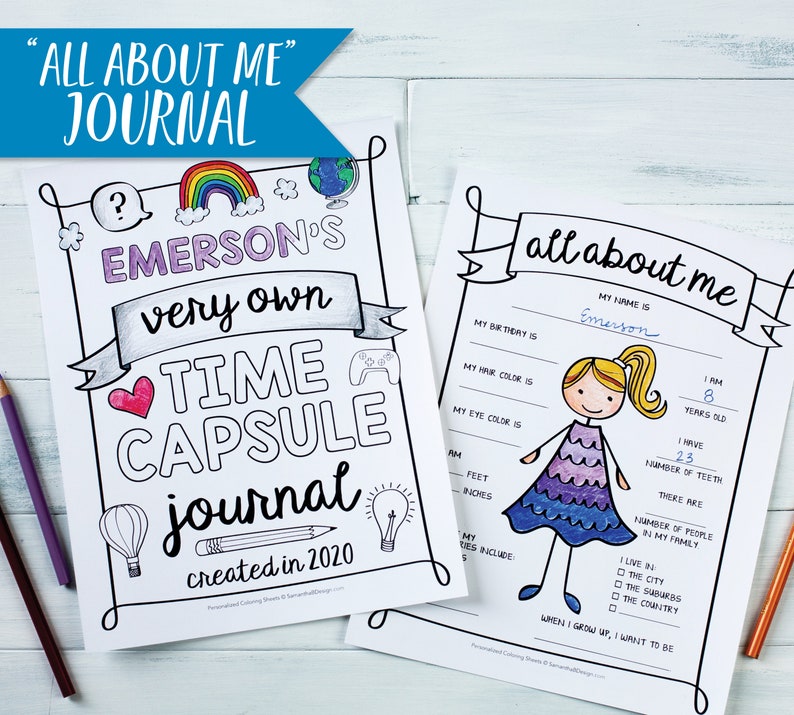 "ALL ABOUT ME"
JOURNAL
?
EMERSON'S
very own
TIME
CAPSULE
journal
created in 2020
Personalized Coloring Sheets © SamanthaBDesign.com
all about me
MY NAME IS
Emerson
MY BIRTHDAY IS
MY HAIR COLOR IS
MY EYE COLOR IS
AM
FEET
INCHES
MY
RIES INCLUDE:
S
I AM
8
YEARS OLD
I HAVE
23
NUMBER OF TEETH
THERE ARE
NUMBER OF PEOPLE
IN MY FAMILY
I LIVE IN:
THE CITY
THE SUBURBS
THE COUNTRY
WHEN I GROW UP, I WANT TO BE
Personalized Coloring Sheets © SamanthaBDesign.com